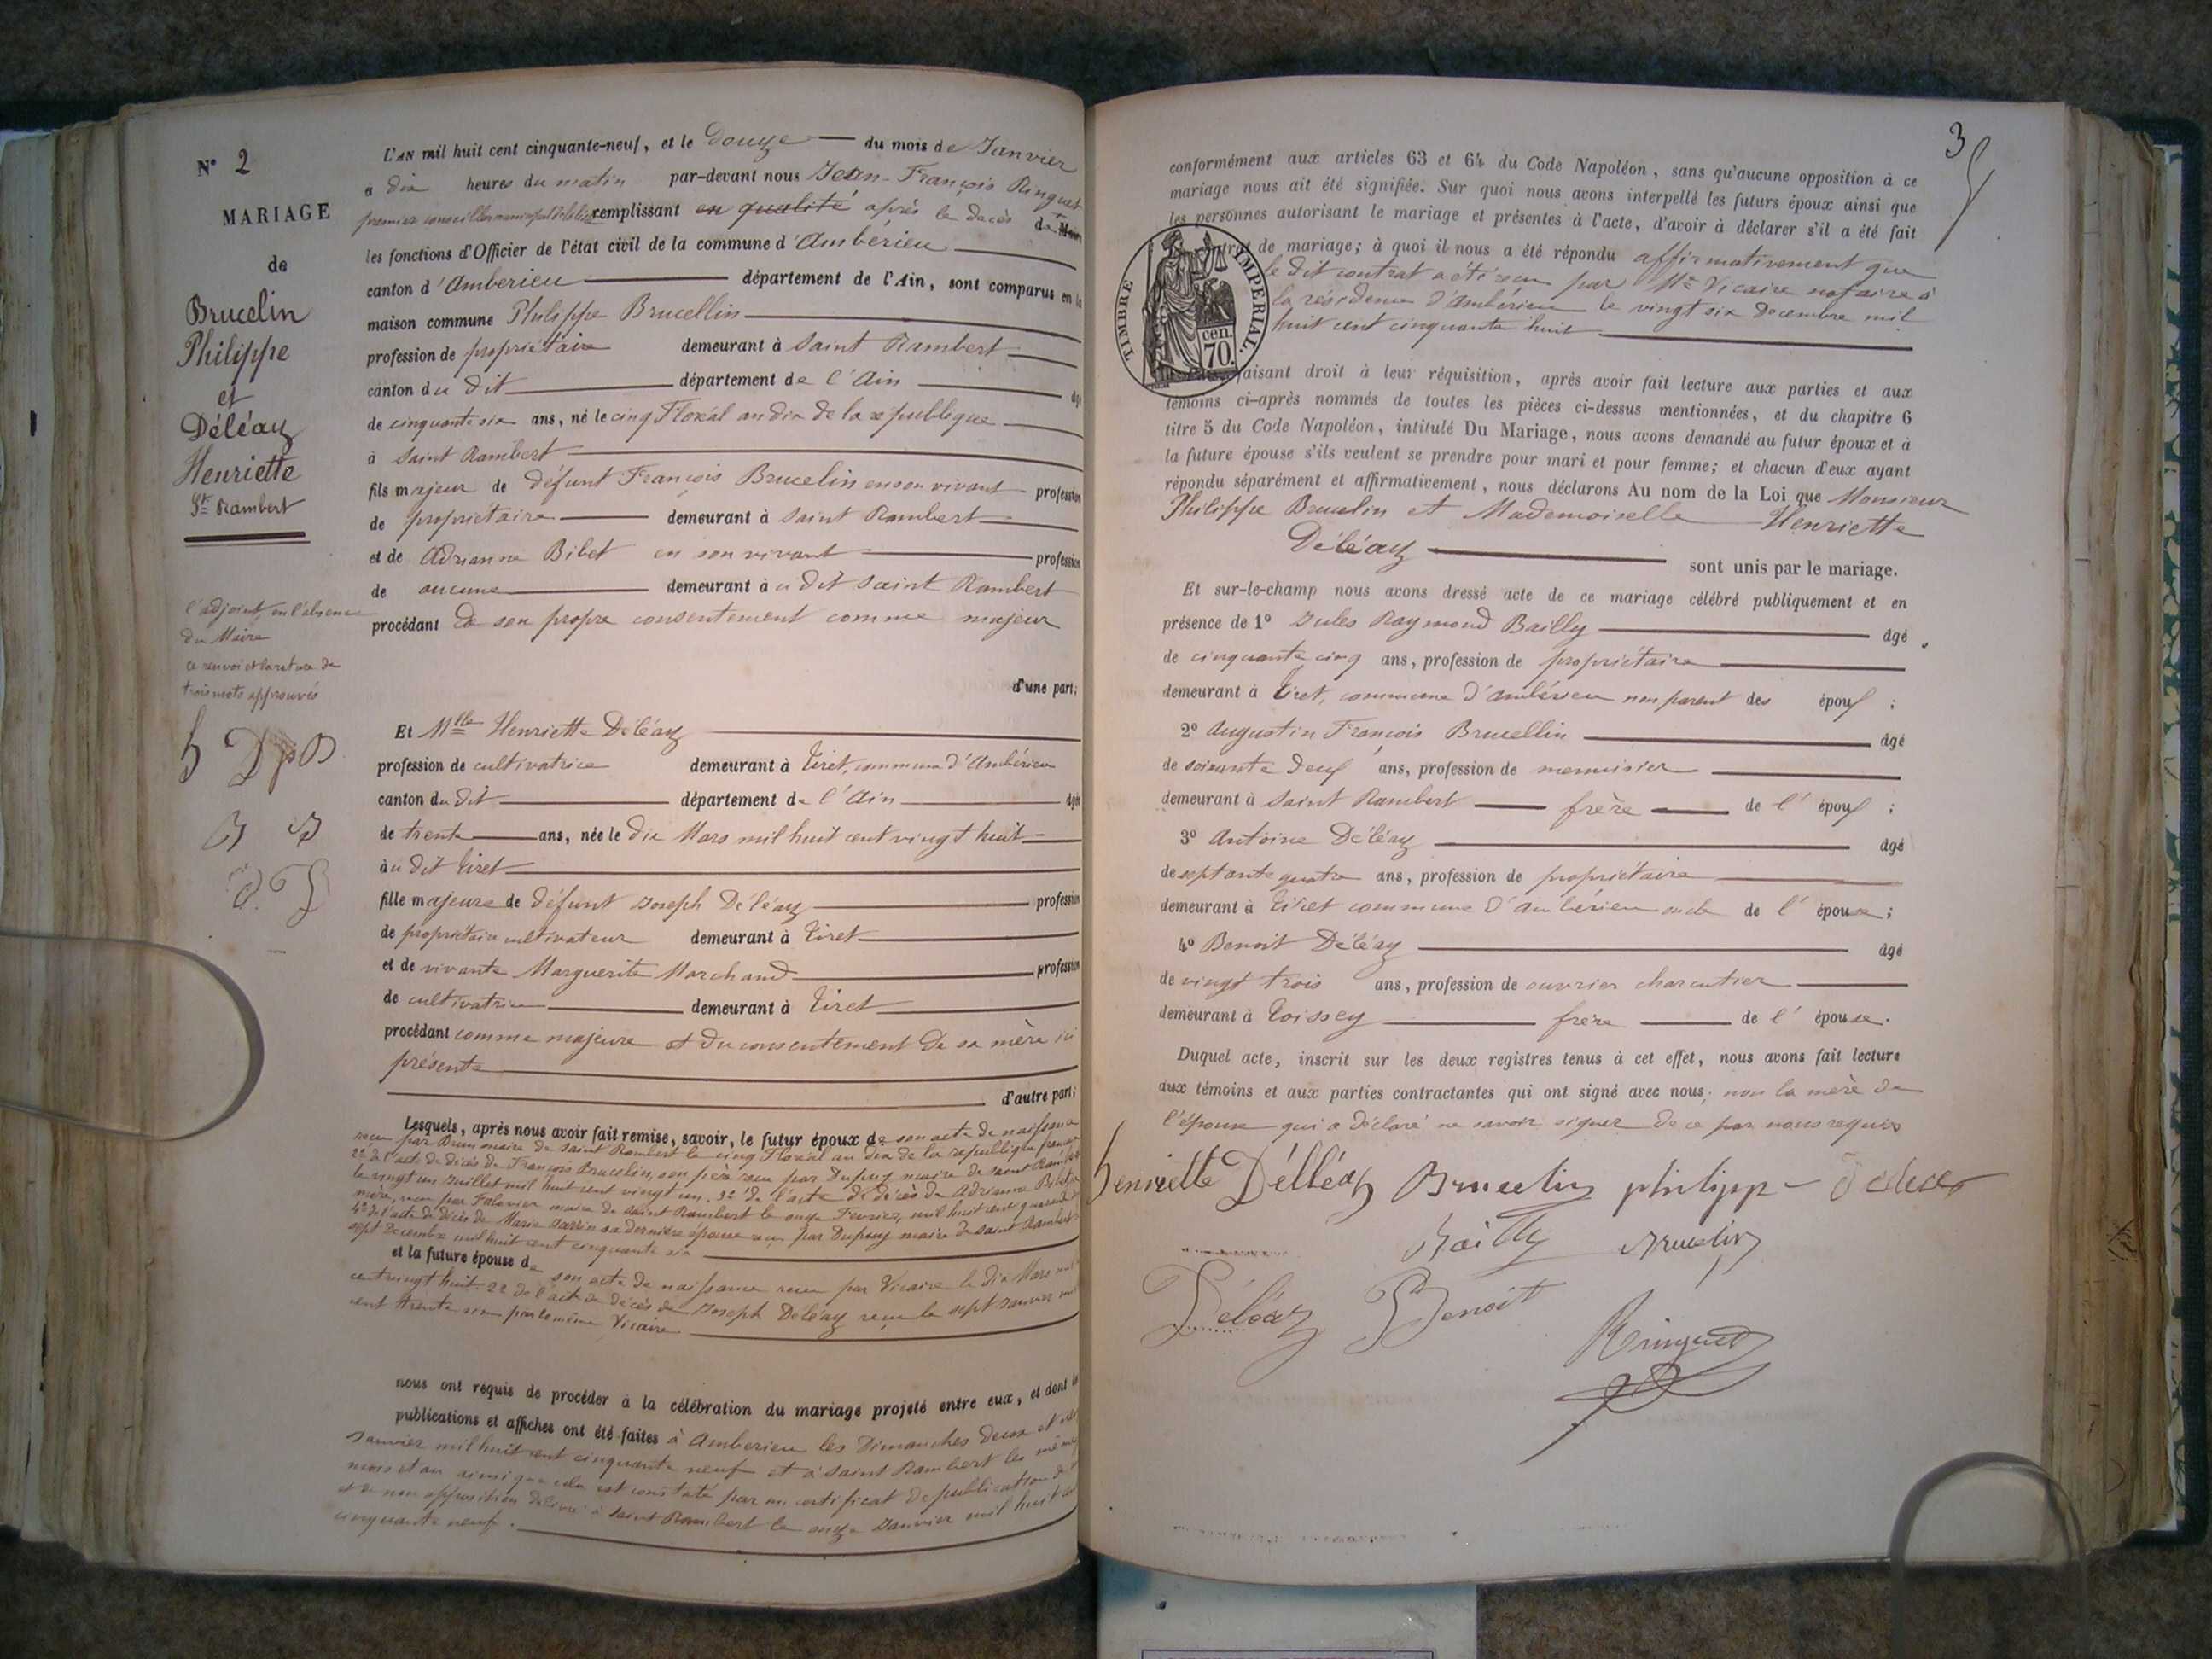 N° 2
MARIAGE
de
Brucelin
Philippe
et
Déléaz
Henriette
St Rambert
l'adjoint, en l'absence
du Maire
ce renvoi et la rature de
trois mots approuvés
L'AN mil huit cent cinquante-neuf, et le Douze du mois de Janvier
à dix heures du matin par-devant nous Jean-François Ringuet
premier conseiller municipal remplissant en qualité après le décès de
les fonctions d'Officier de l'état civil de la commune d'Ambérieu
canton d'Amberieu département de l'Ain, sont comparus en la
maison commune Philippe Brucellin
profession de propriétaire demeurant à Saint Rambert
canton du dit département de l'Ain âgé
de cinquante six ans, né le cinq Floréal an dix de la republique
à Saint Rambert
fils majeur de défunt François Brucelin en son vivant profession
de propriétaire demeurant à Saint Rambert
et de Adrianne Bibet en son vivant profession
de aucune demeurant à u dit Saint Rambert
procédant de son propre consentement comme majeur
d'une part;
Et Mlle Henriette Déléaz
profession de cultivatrice demeurant à Tiret, commune d'Ambérieu
canton du dit département de l'Ain âgée
de trente ans, née le dix Mars mil huit cent vingt huit
àu dit Tiret
fille majeure de défunt Joseph Déléaz profession
de propriétaire cultivateur demeurant à Tiret
et de vivante Marguerite Marchand profession
de cultivatrice demeurant à Tiret
procédant comme majeure et du consentement de sa mère ici
présente
d'autre part;
Lesquels, après nous avoir fait remise, savoir, le futur époux de son acte de naissance
reçu par Brun maire de Saint Rambert le cinq Floréal an dix de la republique
2° de l'acte de décès de François Brucelin, son père reçu par Dupuy maire de Saint Rambert
le vingt un Juillet mil huit cent vingt un. 3° de l'acte de décès de Adrienne Bibet
mère, reçu par maire de Saint Rambert le onze Fevrier, mil huit cent
4° de l'acte de décès de Marie sa dernière épouse reçu par Dupuy maire de Saint Rambert
sept Decembre mil huit cent cinquante six
et la future épouse de son acte de naissance reçu par Vicaire le dix Mars mil
cent vingt huit 2° de l'acte de décès de Joseph Déléaz reçu le sept Janvier mil
cent trente six par le même Vicaire
nous ont requis de procéder à la célébration du mariage projeté entre eux, et dont les
publications et affiches ont été faites à Amberieu les Dimanches deux et neuf
Janvier mil huit cent cinquante neuf et à Saint Rambert les mêmes
mois et an ainsi que cela est constaté par un certificat de publication
et de non opposition délivré à Saint Rambert le onze Janvier mil huit cent
cinquante neuf.
3
conformément aux articles 63 et 64 du Code Napoléon, sans qu'aucune opposition à ce
mariage nous ait été signifiée. Sur quoi nous avons interpellé les futurs époux ainsi que
les personnes autorisant le mariage et présentes à l'acte, d'avoir à déclarer s'il a été fait
de mariage; à quoi il nous a été répondu affirmativement que
le dit contrat a été reçu par Me Vicaire notaire à
la résidence d'Ambérieu le vingt six Decembre mil
huit cent cinquante huit
TIMBRE IMPERIAL.
cen.
70.
faisant droit à leur réquisition, après avoir fait lecture aux parties et aux
témoins ci-après nommés de toutes les pièces ci-dessus mentionnées, et du chapitre 6
titre 5 du Code Napoléon, intitulé Du Mariage, nous avons demandé au futur époux et à
la future épouse s'ils veulent se prendre pour mari et pour femme; et chacun d'eux ayant
répondu séparément et affirmativement, nous déclarons Au nom de la Loi que Monsieur
Philippe Brucelin et Mademoiselle Henriette
Déléaz sont unis par le mariage.
Et sur-le-champ nous avons dressé acte de ce mariage célébré publiquement et en
présence de 1° Jules Raymond Bailly âgé
de cinquante cinq ans, profession de propriétaire
demeurant à Tiret, commune d'Ambérieu non parent des époux ;
2° Augustin François Brucellin âgé
de soixante deux ans, profession de menuisier
demeurant à Saint Rambert frère de l'époux ;
3° Antoine Déléaz âgé
de septante quatre ans, profession de propriétaire
demeurant à Tiret commune d'Ambérieu oncle de l'épouse;
4° Benoit Déléaz âgé
de vingt trois ans, profession de ouvrier charcutier
demeurant à Toissey frère de l'épouse.
Duquel acte, inscrit sur les deux registres tenus à cet effet, nous avons fait lecture
aux témoins et aux parties contractantes qui ont signé avec nous; non la mère de
l'épouse qui a déclaré ne savoir signer de ce par nous requis
henriette Délléaz Brucelin philipp
Bailly Brucelin
Deléaz Benoit
Ringuet